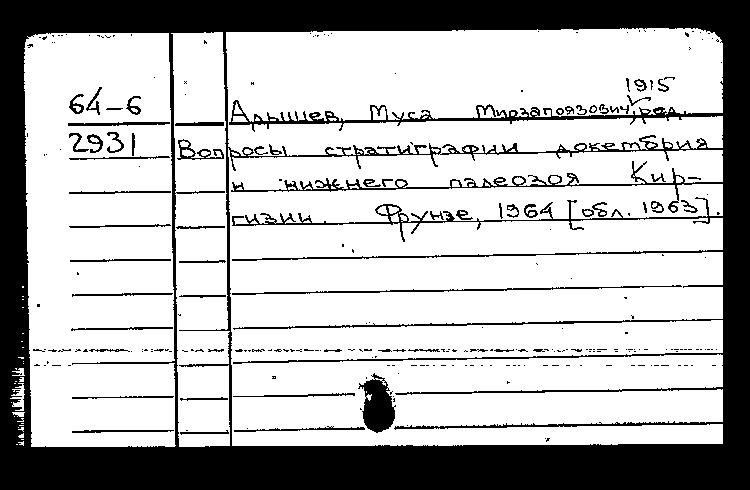 1915
64-6 Адышев, Муса Мирзапоязович, ред.
2931 Вопросы стратиграфии докембрия
и нижнего палеозоя Кир-
гизии. Фрунзе, 1964 [обл. 1963].